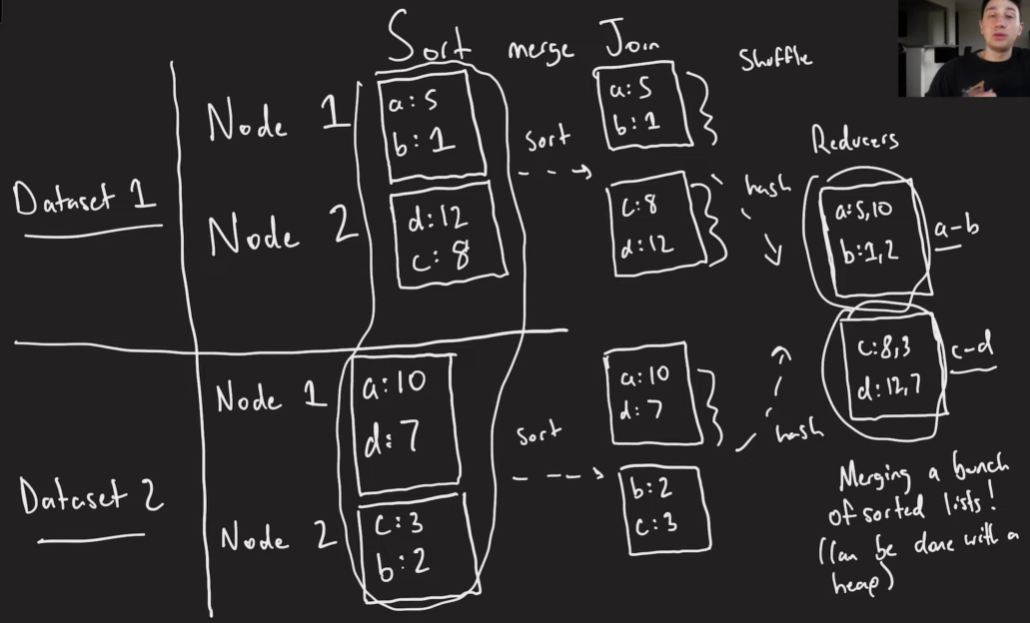 Sort merge Join
Shuffle
Dataset 1
Node 1
a:5
b:1
Node 2
d:12
c:8
sort
a:5
b:1
c:8
d:12
hash
Reducers
a:5,10
b:1,2
a-b
c:8,3
d:12,7
c-d
Dataset 2
Node 1
a:10
d:7
Node 2
c:3
b:2
sort
a:10
d:7
b:2
c:3
hash
Merging a bunch
of sorted lists!
(Can be done with a
heap)